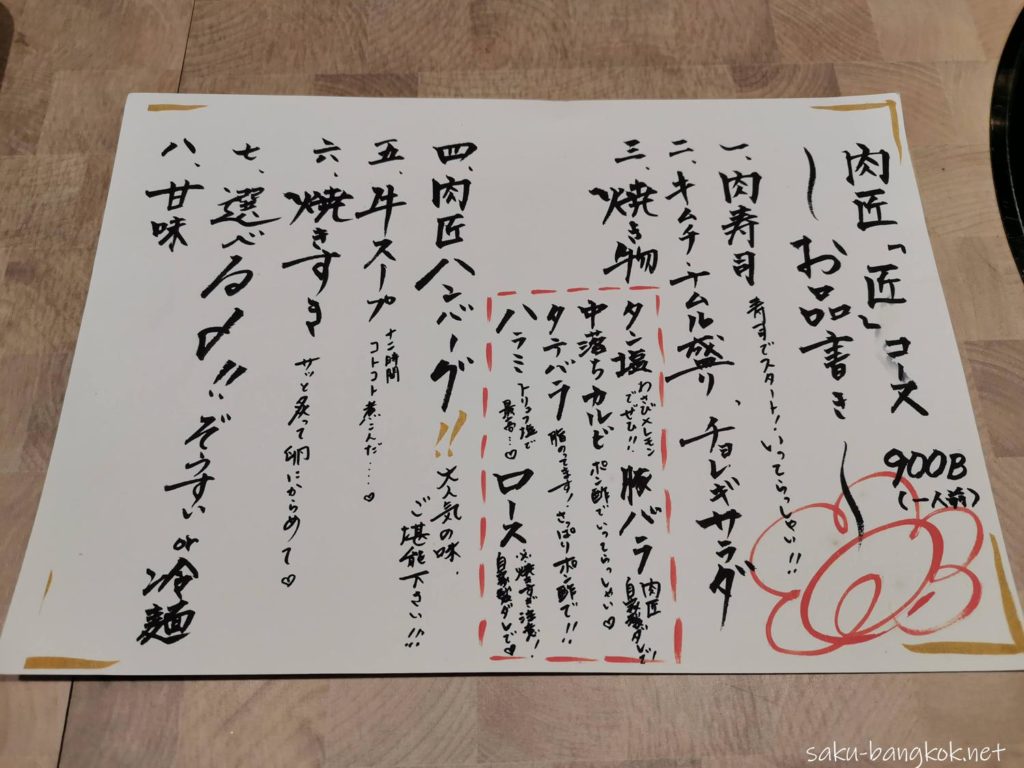 肉匠「匠」コース
900B
(一人前)
お品書き
一、肉寿司
寿すでスタート!いってらっしゃい!!
二、キムチ・ナムル盛り、チョレギサラダ
三、焼き物
タン塩
わさび×レモン
でぜひ!!
豚バラ
肉匠
自家製ダレで!
中落ちカルビ
ポン酢でいってらっしゃい♡
タテバラ
脂のてます!さっぱりポン酢で!!
ハラミ
トリュフ塩で
最高…♡
ロース
※焼きすぎ注意!
自家製ダレで♡
四、肉匠ハンバーグ!!
大人気の味、
ご堪能下さい!!!
五、牛スープ
十二時間
コトコト煮こんだ…♡
六、焼きすき
サッと炙って卵にからめて♡
七、選べる〆!!ぞうすい or 冷麺
八、甘味
saku-bangkok.net